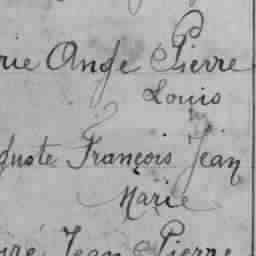 rie Ange Pierre
Louis
guste François Jean
Marie
Jean Pierre